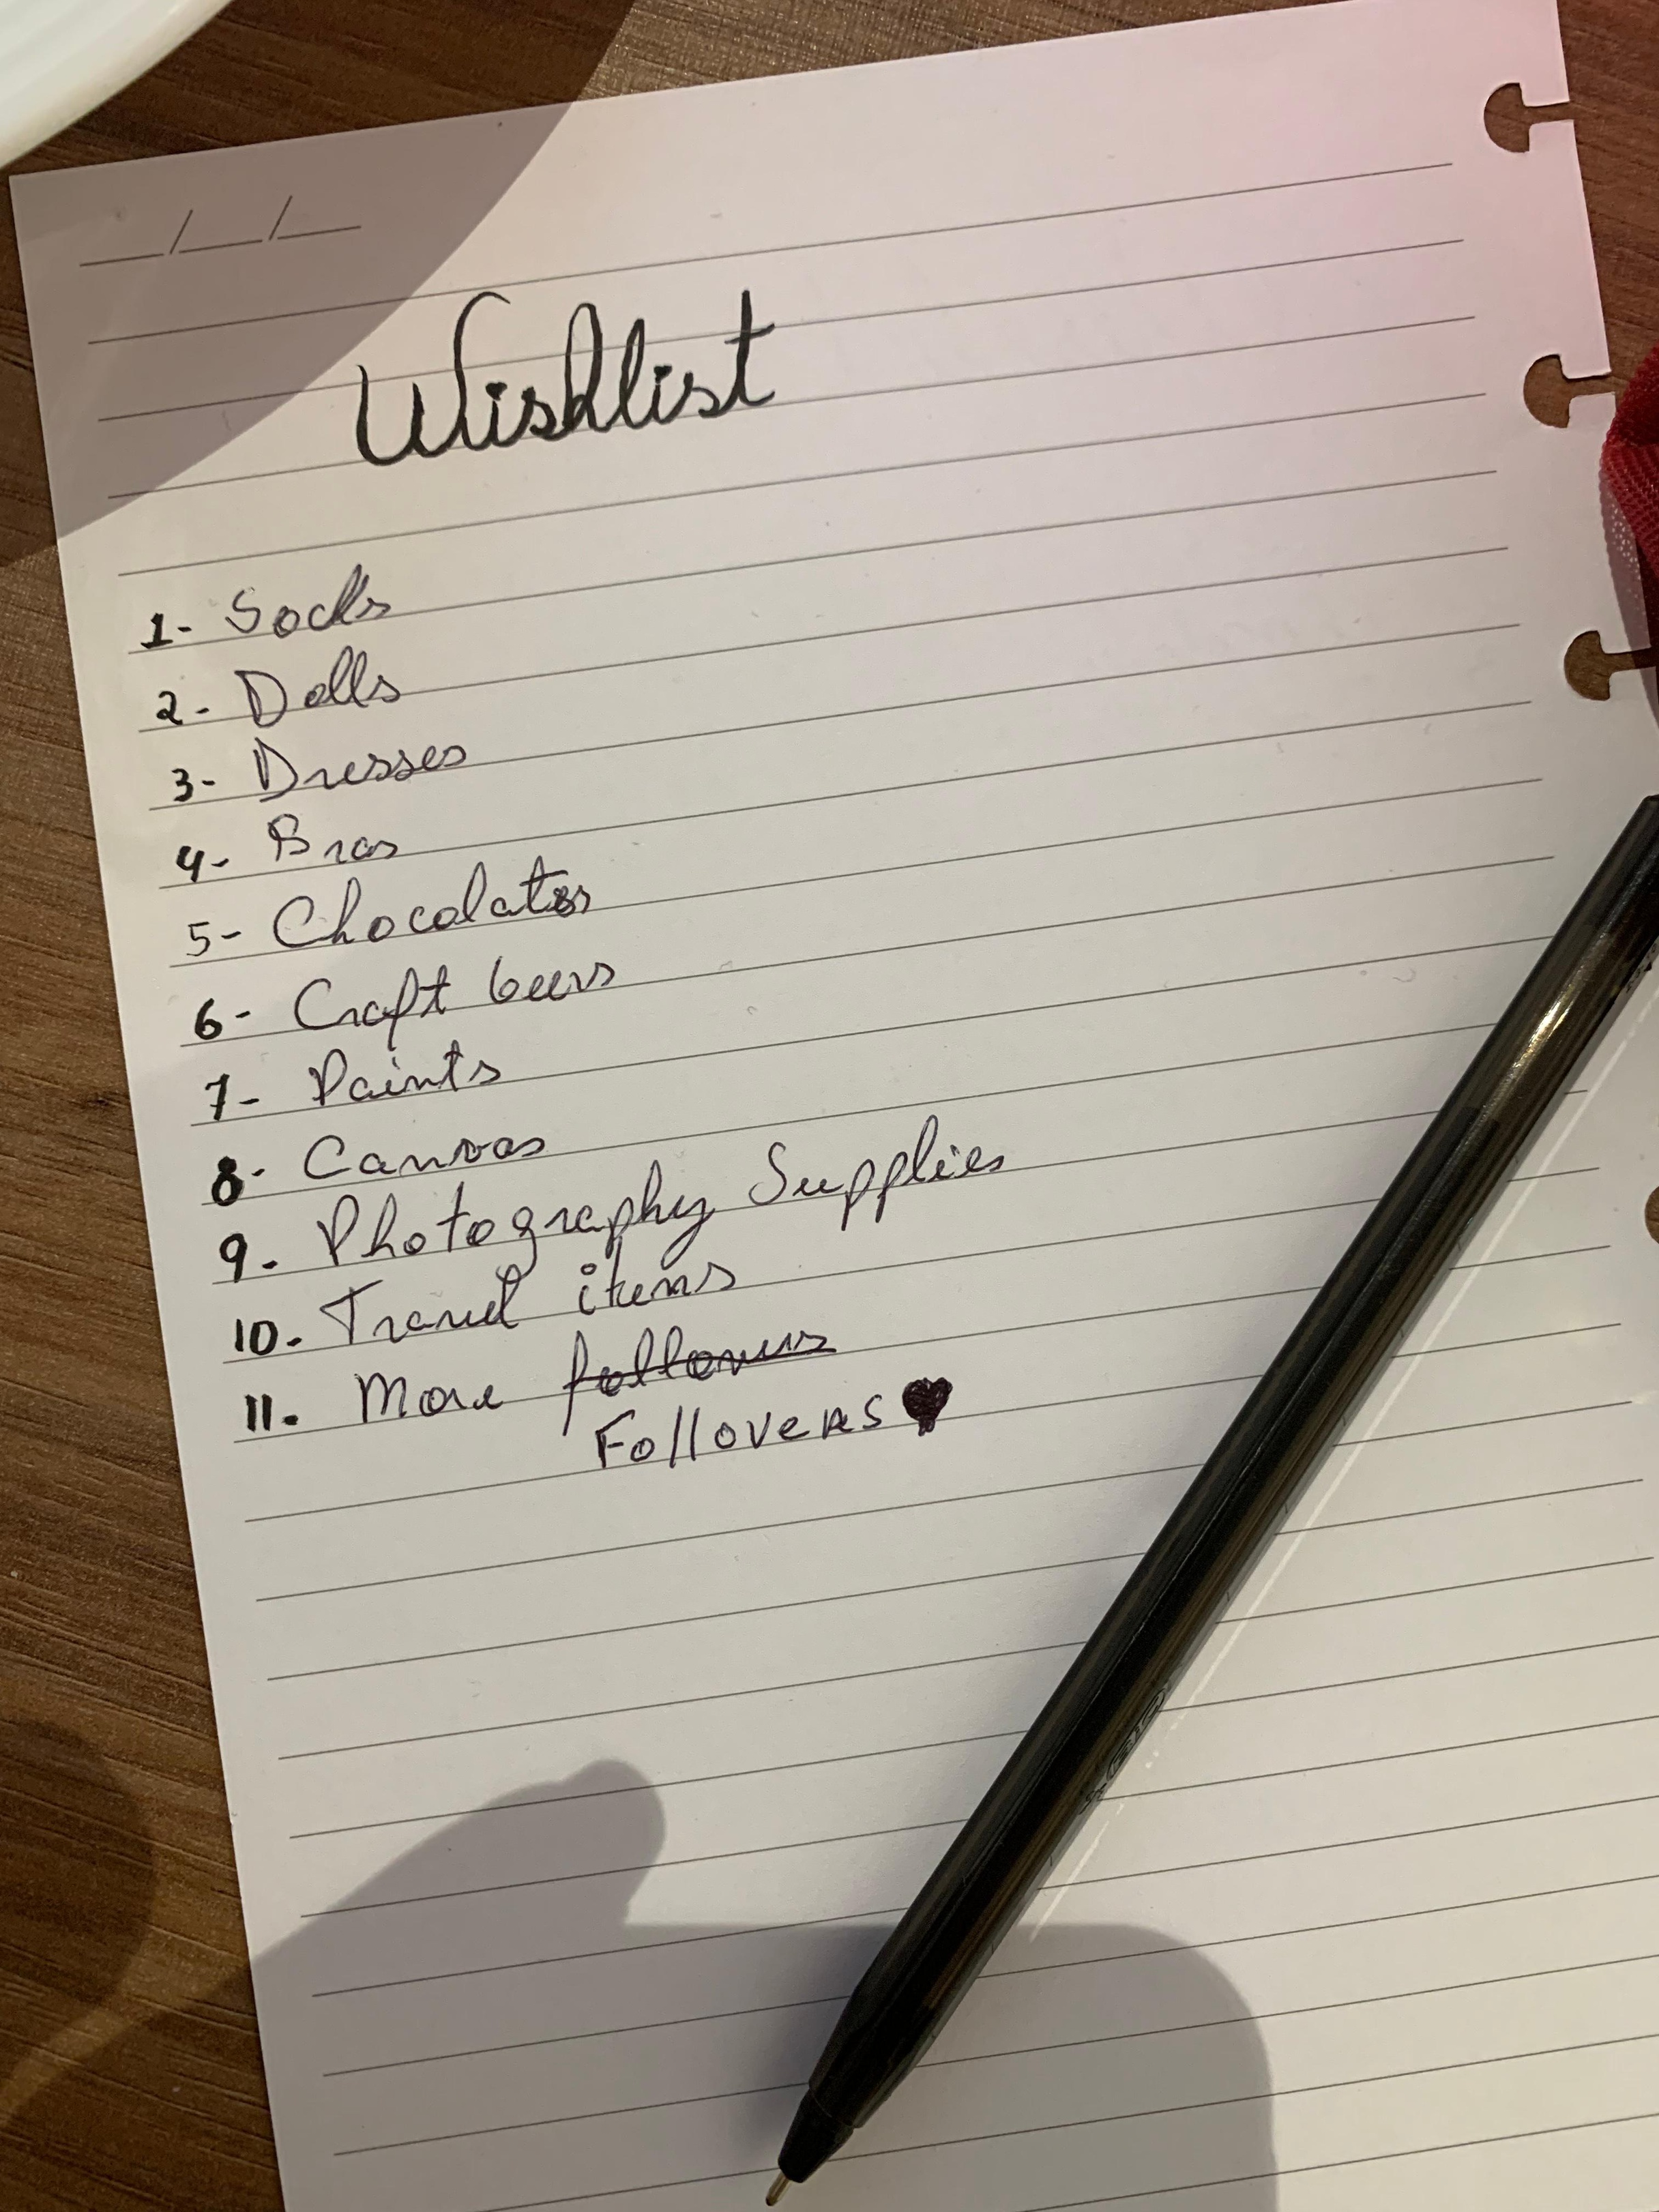 __/__/__
Wishlist
1- Socks
2- Dolls
3- Dresses
4- Bras
5- Chocolates
6- Craft beers
7- Paints
8- Canvas
9- Photography Supplies
10- Travel items
11- More followers
Followers ♥